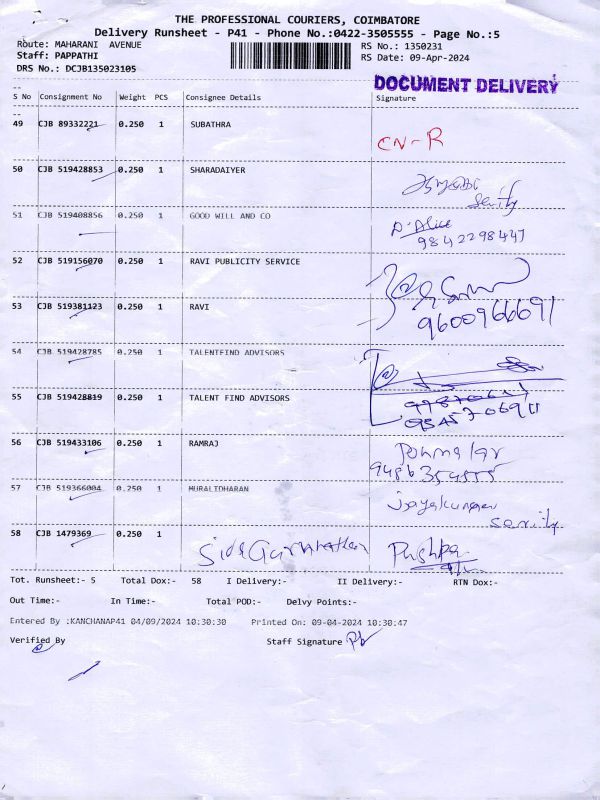 THE PROFESSIONAL COURIERS, COIMBATORE
Delivery Runsheet - P41 - Phone No.:0422-3505555 - Page No.:5
Route: MAHARANI AVENUE RS No.: 1350231
Staff: PAPPATHI RS Date: 09-Apr-2024
DRS No.: DCJB135023105
DOCUMENT DELIVERY
S No Consignment No Weight PCS Consignee Details Signature
49 CJB 89332221 0.250 1 SUBATHRA CN-R
50 CJB 519428853 0.250 1 SHARADAIYER
51 CJB 519408856 0.250 1 GOOD WILL AND CO D. Alice
9842298447
52 CJB 519156070 0.250 1 RAVI PUBLICITY SERVICE
53 CJB 519381123 0.250 1 RAVI 9600966691
54 CJB 519428785 0.250 1 TALENTFIND ADVISORS
55 CJB 519428819 0.250 1 TALENT FIND ADVISORS
56 CJB 519433106 0.250 1 RAMRAJ Ponmalar
57 CJB 519366004 0.250 1 MURALIDHARAN Jayakumar
58 CJB 1479369 0.250 1 Pushpa
Tot. Runsheet:- 5 Total Dox:- 58 I Delivery:- II Delivery:- RTN Dox:-
Out Time:- In Time:- Total POD:- Delvy Points:-
Entered By :KANCHANAP41 04/09/2024 10:30:30 Printed On: 09-04-2024 10:30:47
Verified By Staff Signature